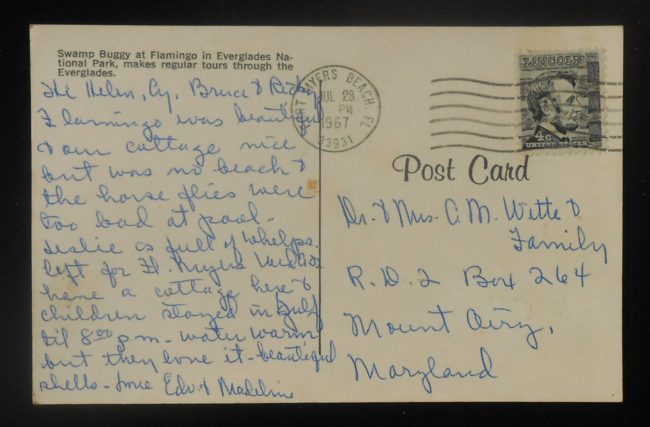 Swamp Buggy at Flamingo in Everglades Na-
tional Park, makes regular tours through the
Everglades.
Hi Helen, Cy, Bruce & Ricky
Flamingo was beautiful
& our cottage nice
but was no beach &
the horse flies were
too bad at pool -
Leslie is full of whelps.
left for Ft. Myers
have a cottage here &
children stayed in Gulf
til 8:00 p.m. - water warm
but they love it - beautiful
shells - Love Edw & Madeline
FORT MYERS BEACH, FL
JUL 28
PM
1967
33931
LINCOLN
4c
UNITED STATES
Post Card
Dr. & Mrs. C. M. Witte &
Family
R.D. 2 Box 264
Mount Airy,
Maryland